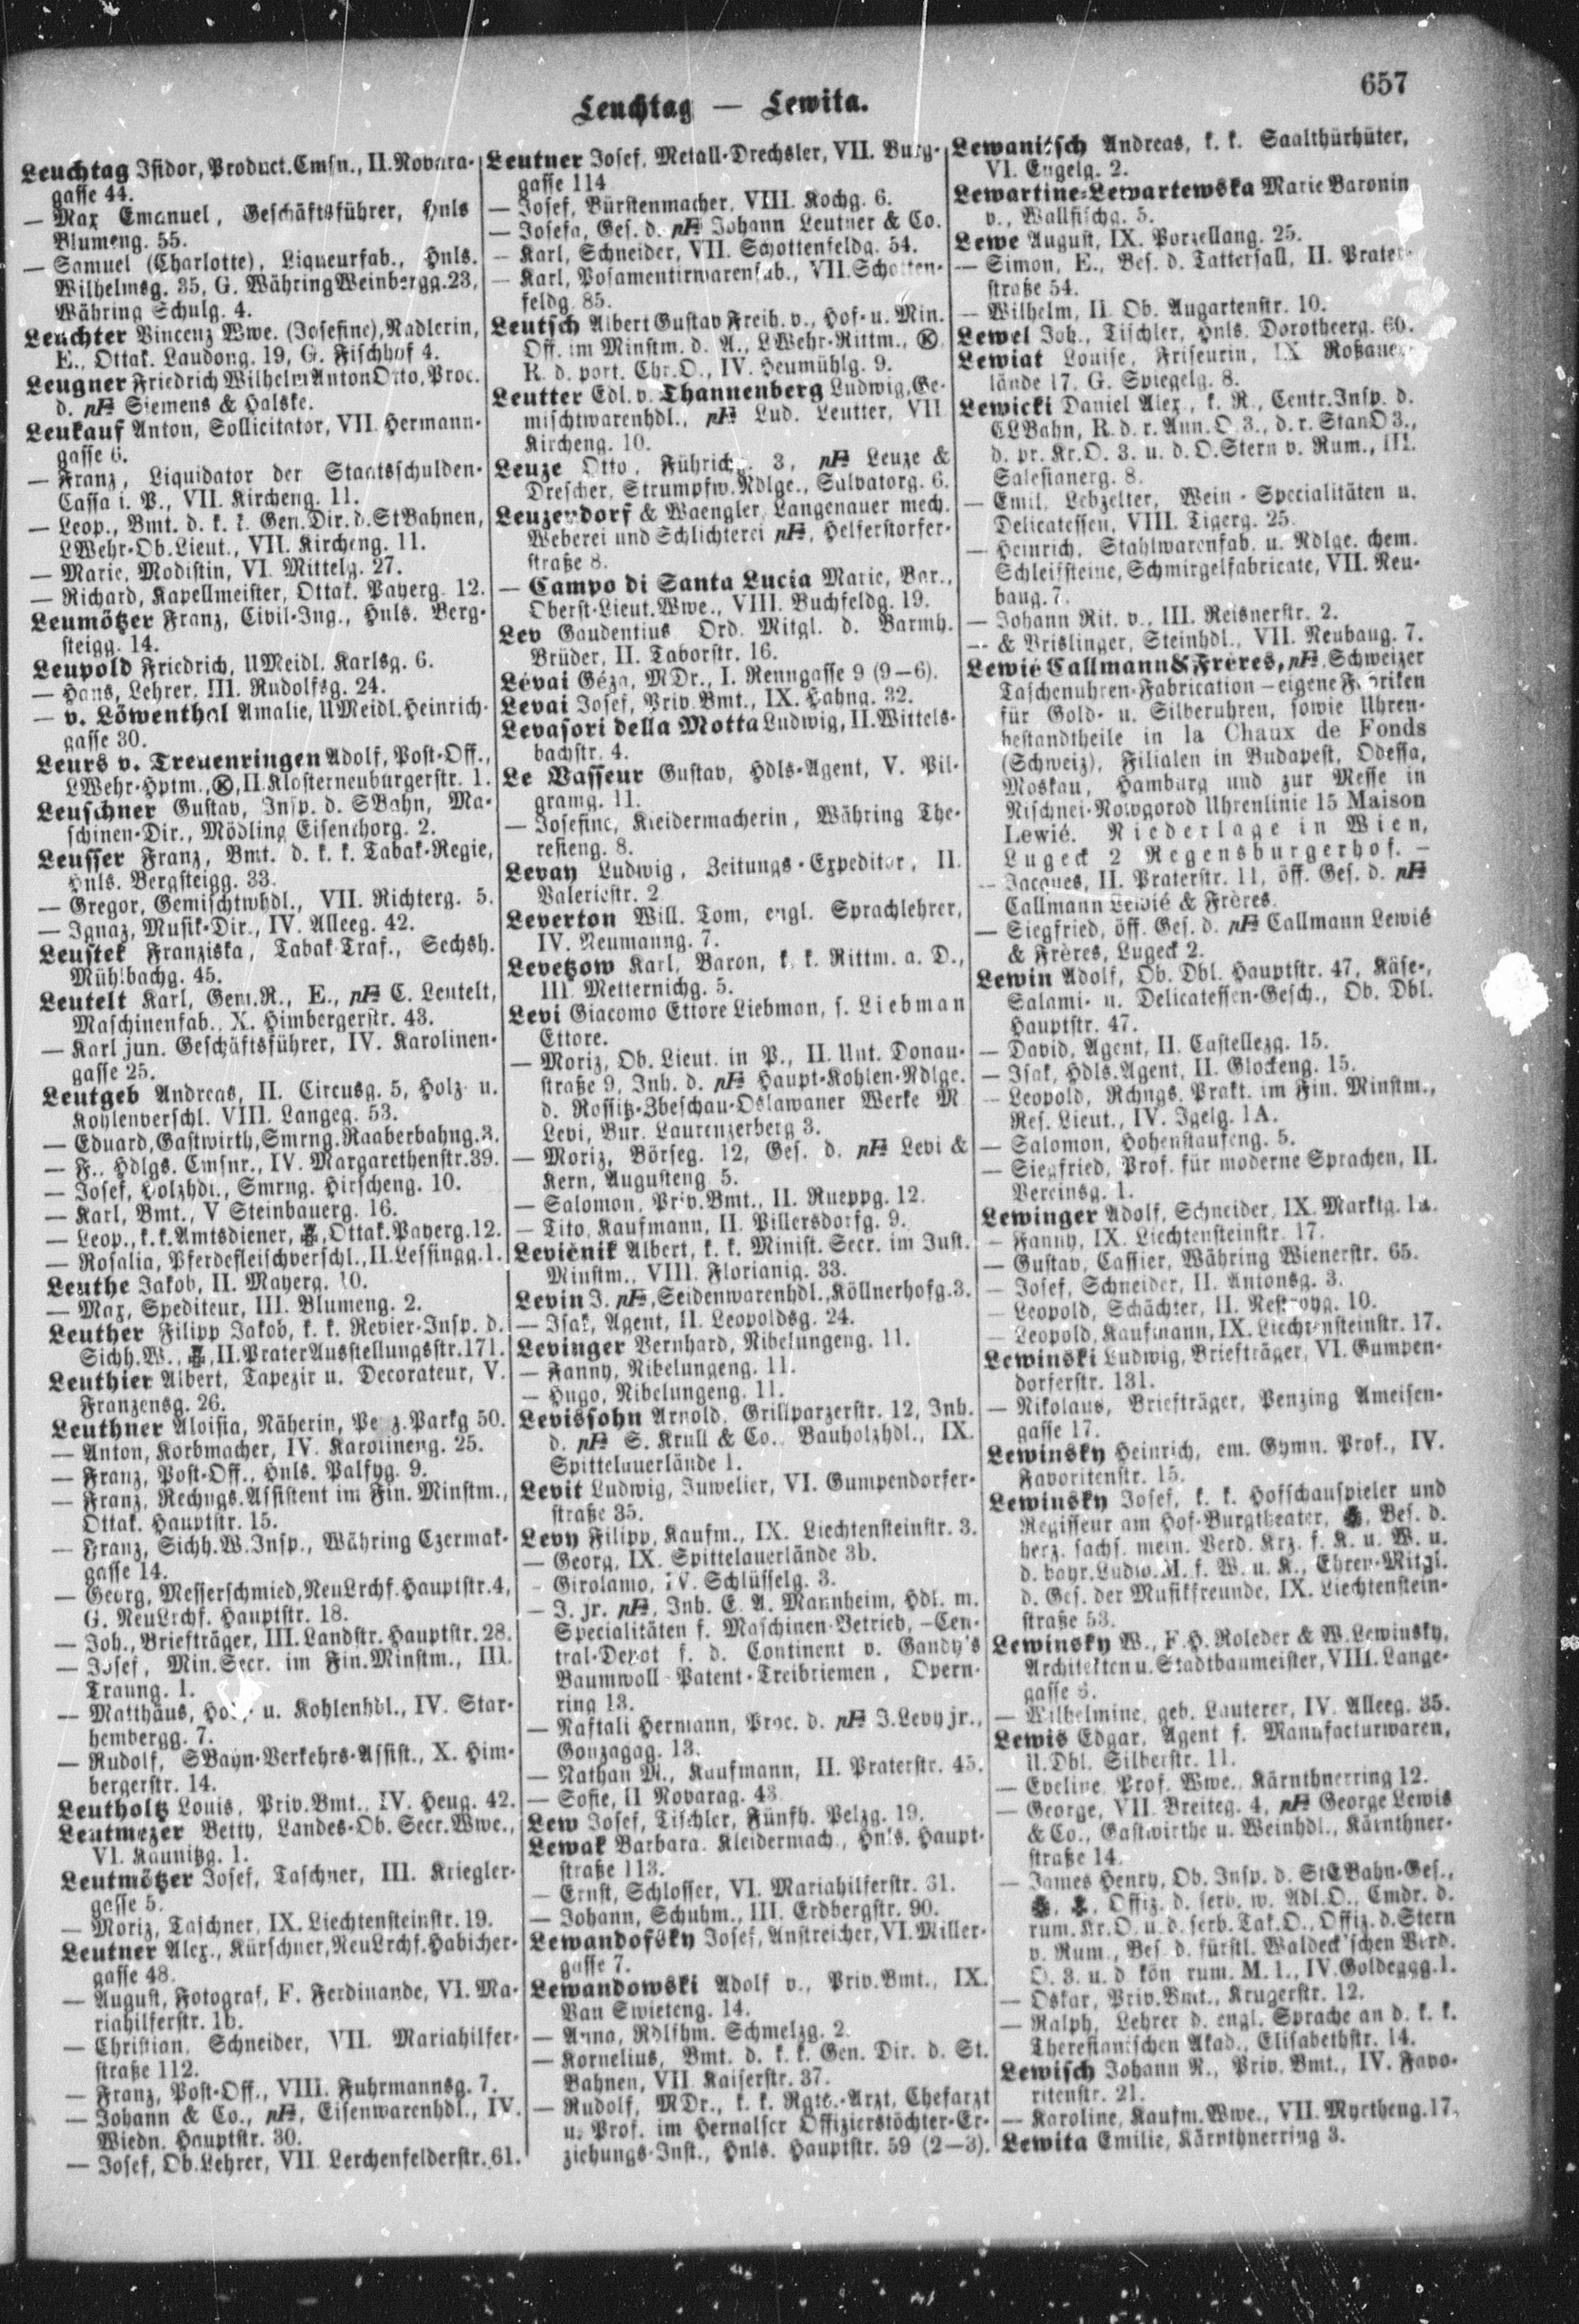 657
Leuchtag — Lewita.
Leuchtag Isidor, Product. Cmsn., II. Novara-
gasse 44.
— Max Emanuel, Geschäftsführer, Hnls
Blumeng. 55.
— Samuel (Charlotte), Liqueurfab., Hnls.
Wilhelmsg. 35, G. Währing Weinbergg. 23,
Währing Schulg. 4.
Leuchter Vincenz Wwe. (Josefine), Nadlerin,
E., Ottak. Laudong. 19, G. Fischhof 4.
Leugner Friedrich Wilhelm Anton Otto, Proc.
d. pF Siemens & Halske.
Leukauf Anton, Sollicitator, VII. Hermann-
gasse 6.
— Franz, Liquidator der Staatsschulden-
Cassa i. P., VII. Kircheng. 11.
— Leop., Bmt. d. k. k. Gen. Dir. d. StBahnen,
LWehr-Ob. Lieut., VII. Kircheng. 11.
— Marie, Modistin, VI. Mittelg. 27.
— Richard, Kapellmeister, Ottak. Payerg. 12.
Leumötzer Franz, Civil-Ing., Hnls. Berg-
steigg. 14.
Leupold Friedrich, UMeidl. Karlsg. 6.
— Hans, Lehrer, III. Rudolfsg. 24.
— v. Löwenthal Amalie, UMeidl. Heinrich-
gasse 30.
Leurs v. Treuenringen Adolf, Post-Off.,
LWehr-Hptm., Ⓚ, II. Klosterneuburgerstr. 1.
Leuschner Gustav, Insp. d. SBahn, Ma-
schinen-Dir., Mödling Eisenthorg. 2.
Leusser Franz, Bmt. d. k. k. Tabak-Regie,
Hnls. Bergsteigg. 33.
— Gregor, Gemischtwhdl., VII. Richterg. 5.
— Ignaz, Musik-Dir., IV. Alleeg. 42.
Leustek Franziska, Tabak-Traf., Sechsh.
Mühlbachg. 45.
Leutelt Karl, Gem. R., E., pF C. Leutelt,
Maschinenfab., X. Himbergerstr. 43.
— Karl jun. Geschäftsführer, IV. Karolinen-
gasse 25.
Leutgeb Andreas, II. Circusg. 5, Holz- u.
Kohlenverschl. VIII. Langeg. 53.
— Eduard, Gastwirth, Smrng. Raaberbahng. 3.
— F., Hdlgs. Cmsnr., IV. Margarethenstr. 39.
— Josef, Holzhdl., Smrng. Hirscheng. 10.
— Karl, Bmt., V Steinbauerg. 16.
— Leop., k. k. Amtsdiener, Ottak. Payerg. 12.
— Rosalia, Pferdefleischverschl., II. Lessingg. 1.
Leuthe Jakob, II. Mayerg. 10.
— Max, Spediteur, III. Blumeng. 2.
Leuther Filipp Jakob, k. k. Revier-Insp. d.
Sichh. W., II. Prater Ausstellungsstr. 171.
Leuthier Albert, Tapezir u. Decorateur, V.
Franzensg. 26.
Leuthner Aloisia, Näherin, Parkg 50.
— Anton, Korbmacher, IV. Karolineng. 25.
— Franz, Post-Off., Hnls. Palfyg. 9.
— Franz, Rechngs. Assistent im Fin. Minstm.,
Ottak. Hauptstr. 15.
— Franz, Sichh. W. Insp., Währing Czermak-
gasse 14.
— Georg, Messerschmied, NeuLrchf. Hauptstr. 4,
G. NeuLrchf. Hauptstr. 18.
— Joh., Briefträger, III. Landstr. Hauptstr. 28.
— Josef, Min. Secr. im Fin. Minstm., III.
Traung. 1.
— Matthäus, u. Kohlenhdl., IV. Star-
hembergg. 7.
— Rudolf, SBahn-Verkehrs-Assist., X. Him-
bergerstr. 14.
Leutholtz Louis, Priv. Bmt., IV. Heug. 42.
Leutmezer Betty, Landes-Ob. Secr. Wwe.,
VI. Kaunitzg. 1.
Leutmötzer Josef, Taschner, III. Kriegler-
gasse 5.
— Moriz, Taschner, IX. Liechtensteinstr. 19.
Leutner Alex., Kürschner, NeuLrchf. Habicher-
gasse 48.
— August, Fotograf, F. Ferdinande, VI. Ma-
riahilferstr. 1b.
— Christian, Schneider, VII. Mariahilfer-
straße 112.
— Franz, Post-Off., VIII. Fuhrmannsg. 7.
— Johann & Co., pF, Eisenwarenhdl., IV.
Wiedn. Hauptstr. 30.
— Josef, Ob. Lehrer, VII. Lerchenfelderstr. 61.
Leutner Josef, Metall-Drechsler, VII. Burg-
gasse 114
— Josef, Bürstenmacher, VIII. Kochg. 6.
— Josefa, Ges. d. pF Johann Leutner & Co.
— Karl, Schneider, VII. Schottenfeldg. 54.
— Karl, Posamentirwarenfab., VII. Schotten-
feldg. 85.
Leutsch Albert Gustav Freih. v., Hof- u. Min.
Off. im Minstm. d. A., LWehr-Rittm., Ⓚ,
R. d. port. Chr. O., IV. Heumühlg. 9.
Leutter Edl. v. Thannenberg Ludwig, Ge-
mischtwarenhdl., pF Lud. Leutter, VII
Kircheng. 10.
Leuze Otto, 3, pF Leuze &
Drescher, Strumpfw. Ndlge., Salvatorg. 6.
Leuzendorf & Waengler, Langenauer mech.
Weberei und Schlichterei pF, Helferstorfer-
straße 8.
— Campo di Santa Lucia Marie, Bar.,
Oberst-Lieut. Wwe., VIII. Buchfeldg. 19.
Lev Gaudentius Ord. Mitgl. d. Barmh.
Brüder, II. Taborstr. 16.
Lévai Géza, MDr., I. Renngasse 9 (9—6).
Levai Josef, Priv. Bmt., IX. Hahng. 32.
Levasori della Motta Ludwig, II. Wittels-
bachstr. 4.
Le Vasseur Gustav, Hdls-Agent, V. Pil-
gramg. 11.
— Josefine, Kleidermacherin, Währing The-
resieng. 8.
Levay Ludwig, Zeitungs-Expeditor, II.
Valeriestr. 2
Leverton Will. Tom, engl. Sprachlehrer,
IV. Neumanng. 7.
Levetzow Karl, Baron, k. k. Rittm. a. D.,
III. Metternichg. 5.
Levi Giacomo Ettore Liebman, s. Liebman
Ettore.
— Moriz, Ob. Lieut. in P., II. Unt. Donau-
straße 9, Inh. d. pF Haupt-Kohlen-Ndlge.
d. Rossitz-Zbeschau-Oslawaner Werke M
Levi, Bur. Laurenzerberg 3.
— Moriz, Börseg. 12, Ges. d. pF Levi &
Kern, Augusteng 5.
— Salomon, Priv. Bmt., II. Rueppg. 12.
— Tito, Kaufmann, II. Pillersdorfg. 9.
Levičnik Albert, k. k. Minist. Secr. im Just.
Minstm., VIII. Florianig. 33.
Levin J. pF, Seidenwarenhdl., Köllnerhofg. 3.
— Isak, Agent, II. Leopoldsg. 24.
Levinger Bernhard, Nibelungeng. 11.
— Fanny, Nibelungeng. 11.
— Hugo, Nibelungeng. 11.
Levissohn Arnold, Grillparzerstr. 12, Inh.
d. pF S. Krull & Co., Bauholzhdl., IX.
Spittelauerlände 1.
Levit Ludwig, Juwelier, VI. Gumpendorfer-
straße 35.
Levy Filipp, Kaufm., IX. Liechtensteinstr. 3.
— Georg, IX. Spittelauerlände 3b.
— Girolamo, IV. Schlüsselg. 3.
— J. jr. pF, Inh. E. A. Mannheim, Hdl. m.
Specialitäten f. Maschinen-Betrieb, -Cen-
tral-Depot f. d. Continent v. Gandy's
Baumwoll-Patent-Treibriemen, Opern-
ring 13.
— Naftali Hermann, Proc. d. pF J. Levy jr.,
Gonzagag. 13.
— Nathan M., Kaufmann, II. Praterstr. 45.
— Sofie, II Novarag. 43
Lew Josef, Tischler, Fünfh. Pelzg. 19.
Lewak Barbara, Kleidermach., Hnls. Haupt-
straße 113.
— Ernst, Schlosser, VI. Mariahilferstr. 31.
— Johann, Schuhm., III. Erdbergstr. 90.
Lewandofsky Josef, Anstreicher, VI. Miller-
gasse 7.
Lewandowski Adolf v., Priv. Bmt., IX.
Van Swieteng. 14.
— Anna, Rdlfhm. Schmelzg. 2.
— Kornelius, Bmt. d. k. k. Gen. Dir. d. St.
Bahnen, VII. Kaiserstr. 37.
— Rudolf, MDr., k. k. Rgts.-Arzt, Chefarzt
u. Prof. im Hernalser Offizierstöchter-Er-
ziehungs-Inst., Hnls. Hauptstr. 59 (2—3).
Lewanitsch Andreas, k. k. Saalthürhüter,
VI. Engelg. 2.
Lewartine-Lewartewska Marie Baronin
v., Wallfischg. 5.
Lewe August, IX. Porzellang. 25.
— Simon, E., Bes. d. Tattersall, II. Prater-
straße 54.
— Wilhelm, II. Ob. Augartenstr. 10.
Lewel Joh., Tischler, Hnls. Dorotheerg. 60.
Lewiat Louise, Friseurin, IX Roßauer-
lände 17, G. Spiegelg. 8.
Lewicki Daniel Alex., k. R., Centr. Insp. d.
CLBahn, R. d. r. Ann. O. 3., d. r. StanO 3.,
d. pr. Kr. O. 3. u. d. O. Stern v. Rum., III.
Salesianerg. 8.
— Emil, Lebzelter, Wein-Specialitäten u.
Delicatessen, VIII. Tigerg. 25.
— Heinrich, Stahlwarenfab. u. Ndlge. chem.
Schleifsteine, Schmirgelfabricate, VII. Neu-
baug. 7.
— Johann Rit. v., III. Reisnerstr. 2.
— & Brislinger, Steinhdl., VII. Neubaug. 7.
Lewié Callmann & Frères, pF, Schweizer
Taschenuhren-Fabrication — eigene Fabriken
für Gold- u. Silberuhren, sowie Uhren-
bestandtheile in la Chaux de Fonds
(Schweiz), Filialen in Budapest, Odessa,
Moskau, Hamburg und zur Messe in
Nischnei-Nowgorod Uhrenlinie 15 Maison
Lewié. Niederlage in Wien,
Lugeck 2 Regensburgerhof. —
— Jacques, II. Praterstr. 11, öff. Ges. d. pF
Callmann Lewié & Frères.
— Siegfried, öff. Ges. d. pF Callmann Lewié
& Frères, Lugeck 2.
Lewin Adolf, Ob. Dbl. Hauptstr. 47, Käse-,
Salami- u. Delicatessen-Gesch., Ob. Dbl.
Hauptstr. 47.
— David, Agent, II. Castellezg. 15.
— Isak, Hdls. Agent, II. Glockeng. 15.
— Leopold, Rchngs. Prakt. im Fin. Minstm.,
Res. Lieut., IV. Igelg. 1A.
— Salomon, Hohenstaufeng. 5.
— Siegfried, Prof. für moderne Sprachen, II.
Vereinsg. 1.
Lewinger Adolf, Schneider, IX. Marktg. 1a.
— Fanny, IX. Liechtensteinstr. 17.
— Gustav, Cassier, Währing Wienerstr. 65.
— Josef, Schneider, II. Antonsg. 3.
— Leopold, Schächter, II. Nestroyg. 10.
— Leopold, Kaufmann, IX. Liechtensteinstr. 17.
Lewinski Ludwig, Briefträger, VI. Gumpen-
dorferstr. 131.
— Nikolaus, Briefträger, Penzing Ameisen-
gasse 17.
Lewinsky Heinrich, em. Gymn. Prof., IV.
Favoritenstr. 15.
Lewinsky Josef, k. k. Hofschauspieler und
Regisseur am Hof-Burgtheater, Bes. d.
herz. sachs. mein. Verd. Krz. f. K. u. W. u.
d. bayr. Ludw. M. f. W. u. K., Ehren-Mitgl.
d. Ges. der Musikfreunde, IX. Liechtenstein-
straße 53.
Lewinsky W., F. H. Roleder & W. Lewinsky,
Architekten u. Stadtbaumeister, VIII. Lange-
gasse
— Wilhelmine, geb. Lauterer, IV. Alleeg. 35.
Lewis Edgar, Agent f. Manufacturwaren,
U. Dbl. Silberstr. 11.
— Eveline, Prof. Wwe., Kärnthnerring 12.
— George, VII. Breiteg. 4, pF George Lewis
& Co., Gastwirthe u. Weinhdl., Kärnthner-
straße 14.
— James Henry, Ob. Insp. d. StEBahn-Ges.,
Offiz. d. serb. w. Adl. O., Cmdr. d.
rum. Kr. O. u. d. serb. Tak. O., Offiz. d. Stern
v. Rum., Bes. d. fürstl. Waldeck'schen Verd.
O. 3. u. d kön. rum. M. 1., IV. Goldeggg. 1.
— Oskar, Priv. Bmt., Krugerstr. 12.
— Ralph, Lehrer d. engl. Sprache an d. k. k.
Theresianischen Akad., Elisabethstr. 14.
Lewisch Johann N., Priv. Bmt., IV. Favo-
ritenstr. 21.
— Karoline, Kaufm. Wwe., VII. Myrtheng. 17.
Lewita Emilie, Kärnthnerring 3.